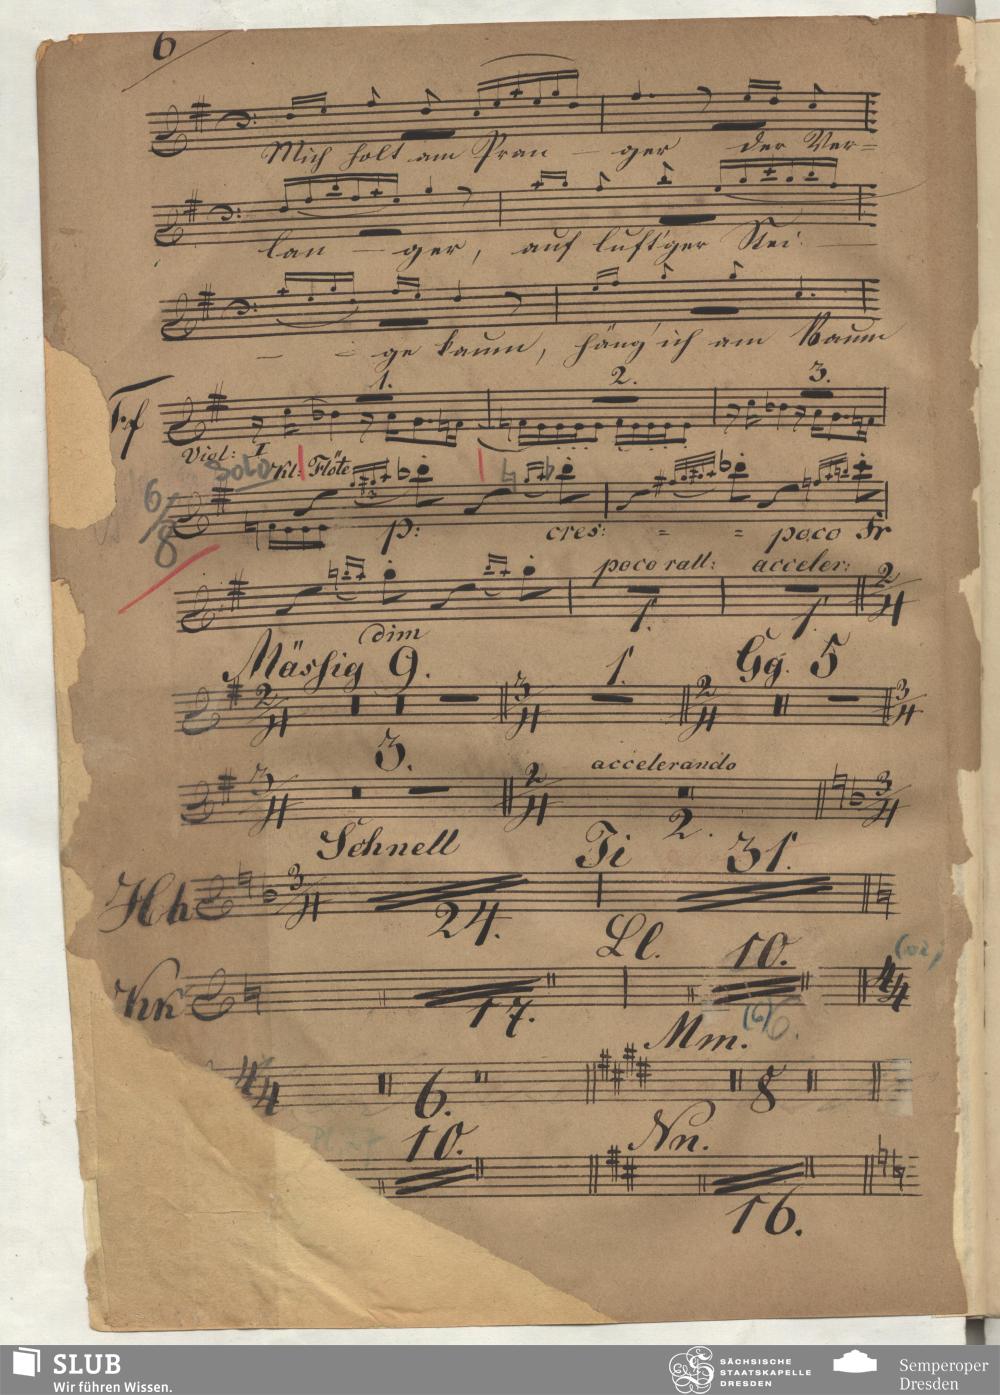 6
Mich holt am Pran - ger der Ver=
lan - ger, auf luft'ger Stei:
- - ge kaum, häng' ich am Baum
1. 2. 3.
Ff
Viol: I
Solo Kl: Flöte
6/8
p: cres: = = poco Fr
poco rall: acceler:
dim 1. 1. 2/4
Mässig 9. 1. Gg. 5
2/4 3/4 2/4 3/4
3. accelerando
3/4 2/4 2. 3/4
Schnell Ii 31.
Hh 3/4 24.
Ll. 10.
Kk 17. 4/4
(6) 6.
Mm.
4/4 6. 8
10. Nn.
16.
SLUB
Wir führen Wissen.
SÄCHSISCHE
STAATSKAPELLE
DRESDEN
Semperoper
Dresden